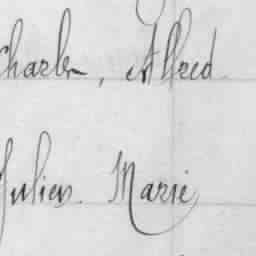 Charles, Alfred
Julien Marie